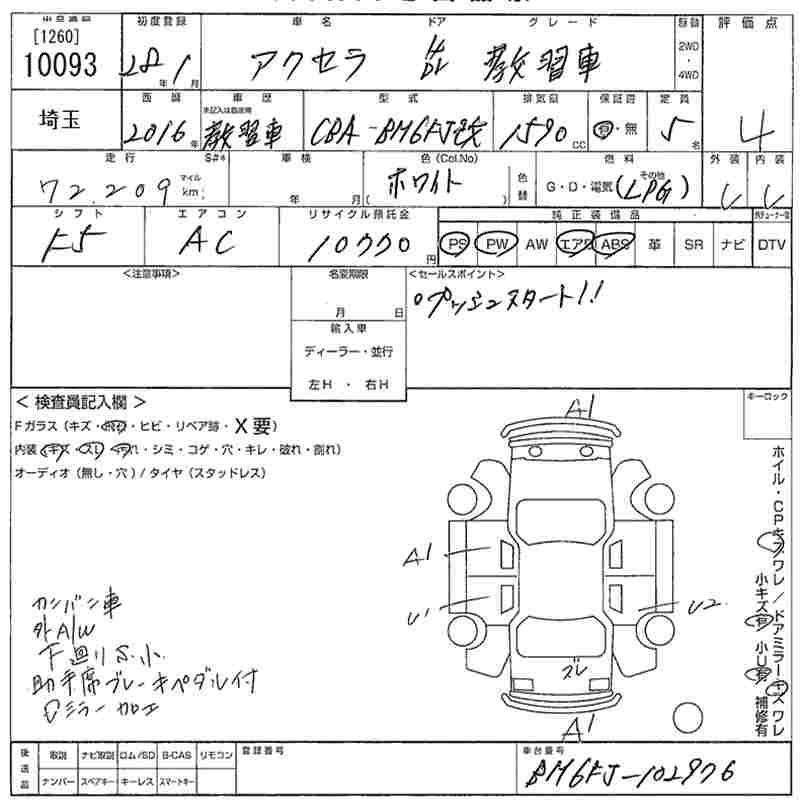 [1260]
10093
初度登録
28年 1月
車名
アクセラ
ドア
グレード
教習車
駆動
2WD
・
4WD
評価点
4
埼玉
西暦
2016年
車歴
未記入は自家用
教習車
型式
CBA-BM6FJ改
排気量
1590 CC
保証書
有・無
定員
5名
走行
72,209
マイル
km
S#*
車検
年 月
色(Col.No)
ホワイト
( )
色替
燃料
G・D・電気 (LPG)
その他
外装
内装
シフト
F5
エアコン
AC
リサイクル預託金
10770円
純正装備品
PS PW AW エアB ABS 革 SR ナビ DTV
<注意事項>
名変期限
月 日
輸入車
ディーラー・並行
左H ・ 右H
<セールスポイント>
○プッシュスタート!!
< 検査員記入欄 >
Fガラス (キズ・・ヒビ・リペア跡・X要)
内装 (キズ・スレ・汚れ・シミ・コゲ・穴・キレ・破れ・割れ)
オーディオ (無し・穴) / タイヤ (スタッドレス)
キーロック
A1
A1
U1
U2
ズレ
A1
ホイル・CPキズワレ/ドアミラーキズワレ
小キズ有 小U有 補修有
カンバン車
外A/W
下廻りS.小
助手席ブレーキペダル付
Dミラー加工
後送品
取説 ナビ取説 ロム/SD B-CAS リモコン
ナンバー スペアキー キーレス スマートキー
登録番号
車台番号
BM6FJ-102976